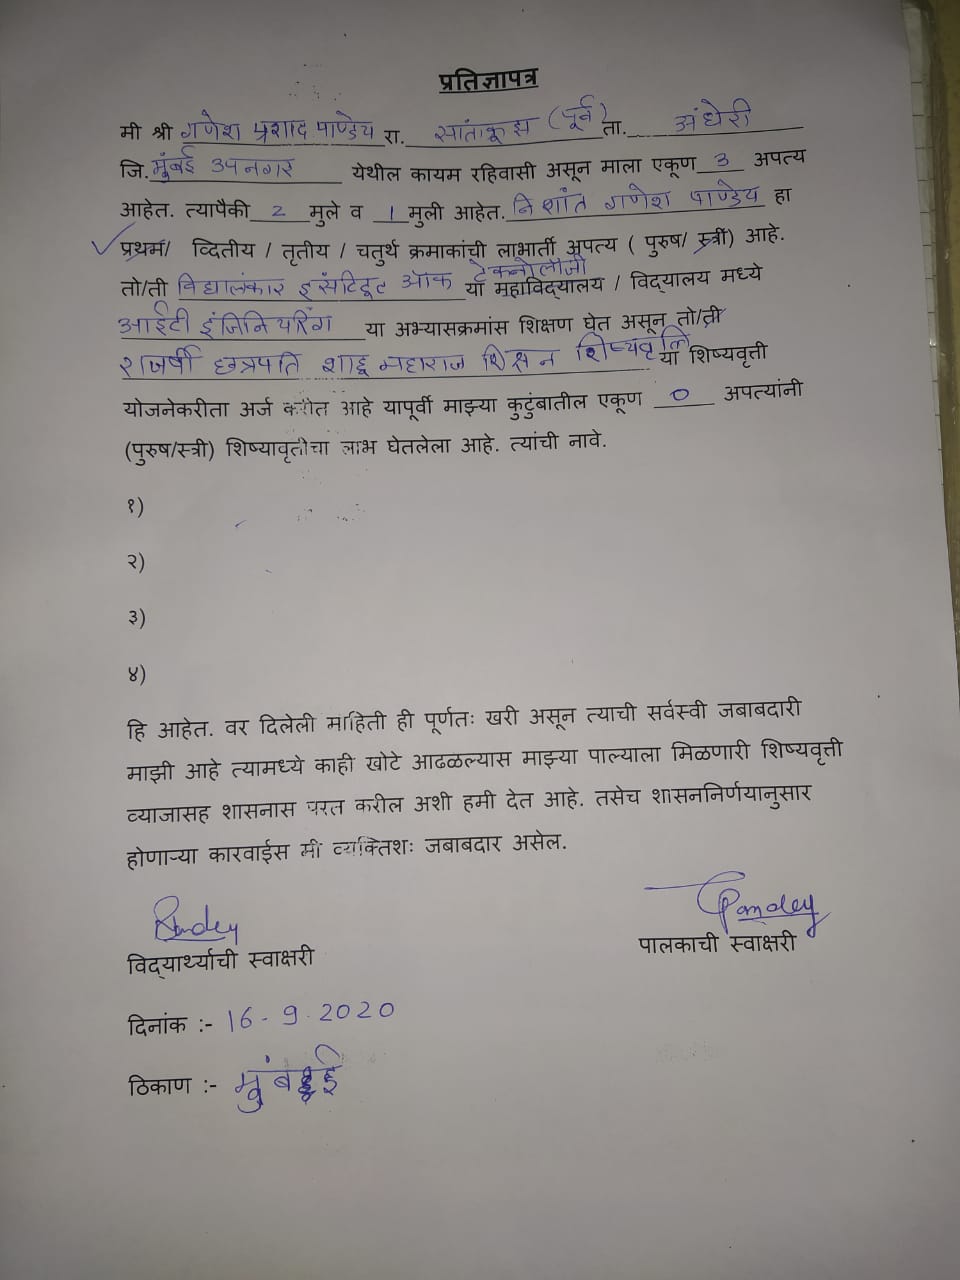 प्रतिज्ञापत्र
मी श्री गणेश प्रसाद पाण्डेय रा. सांताक्रुझ (पूर्व) ता. अंधेरी
जि. मुंबई उपनगर येथील कायम रहिवासी असून माला एकूण 3 अपत्य
आहेत. त्यापैकी 2 मुले व 1 मुली आहेत. निशांत गणेश पाण्डेय हा
प्रथम/ व्दितीय / तृतीय / चतुर्थ क्रमाकांची लाभार्ती अपत्य ( पुरुष/ स्त्री) आहे.
तो/ती विद्यालंकार इंसटिटूट ऑफ टेकनोलॉजी या महाविद्यालय / विद्यालय मध्ये
आईटी इंजिनियरिंग या अभ्यासक्रमांस शिक्षण घेत असून तो/ती
राजर्षी छत्रपति शाहू महाराज शिक्षन शिष्यवृत्ति या शिष्यवृत्ती
योजनेकरीता अर्ज करीत आहे यापूर्वी माझ्या कुटुंबातील एकूण 0 अपत्यांनी
(पुरुष/स्त्री) शिष्यावृतीचा लाभ घेतलेला आहे. त्यांची नावे.
१)
२)
३)
४)
हि आहेत. वर दिलेली माहिती ही पूर्णतः खरी असून त्याची सर्वस्वी जबाबदारी
माझी आहे त्यामध्ये काही खोटे आढळल्यास माझ्या पाल्याला मिळणारी शिष्यवृत्ती
व्याजासह शासनास परत करील अशी हमी देत आहे. तसेच शासननिर्णयानुसार
होणाऱ्या कारवाईस मी व्यक्तिशः जबाबदार असेल.
Pandey
विद्यार्थ्याची स्वाक्षरी
पालकाची स्वाक्षरी
दिनांक :- 16-9.2020
ठिकाण :- मुंबई